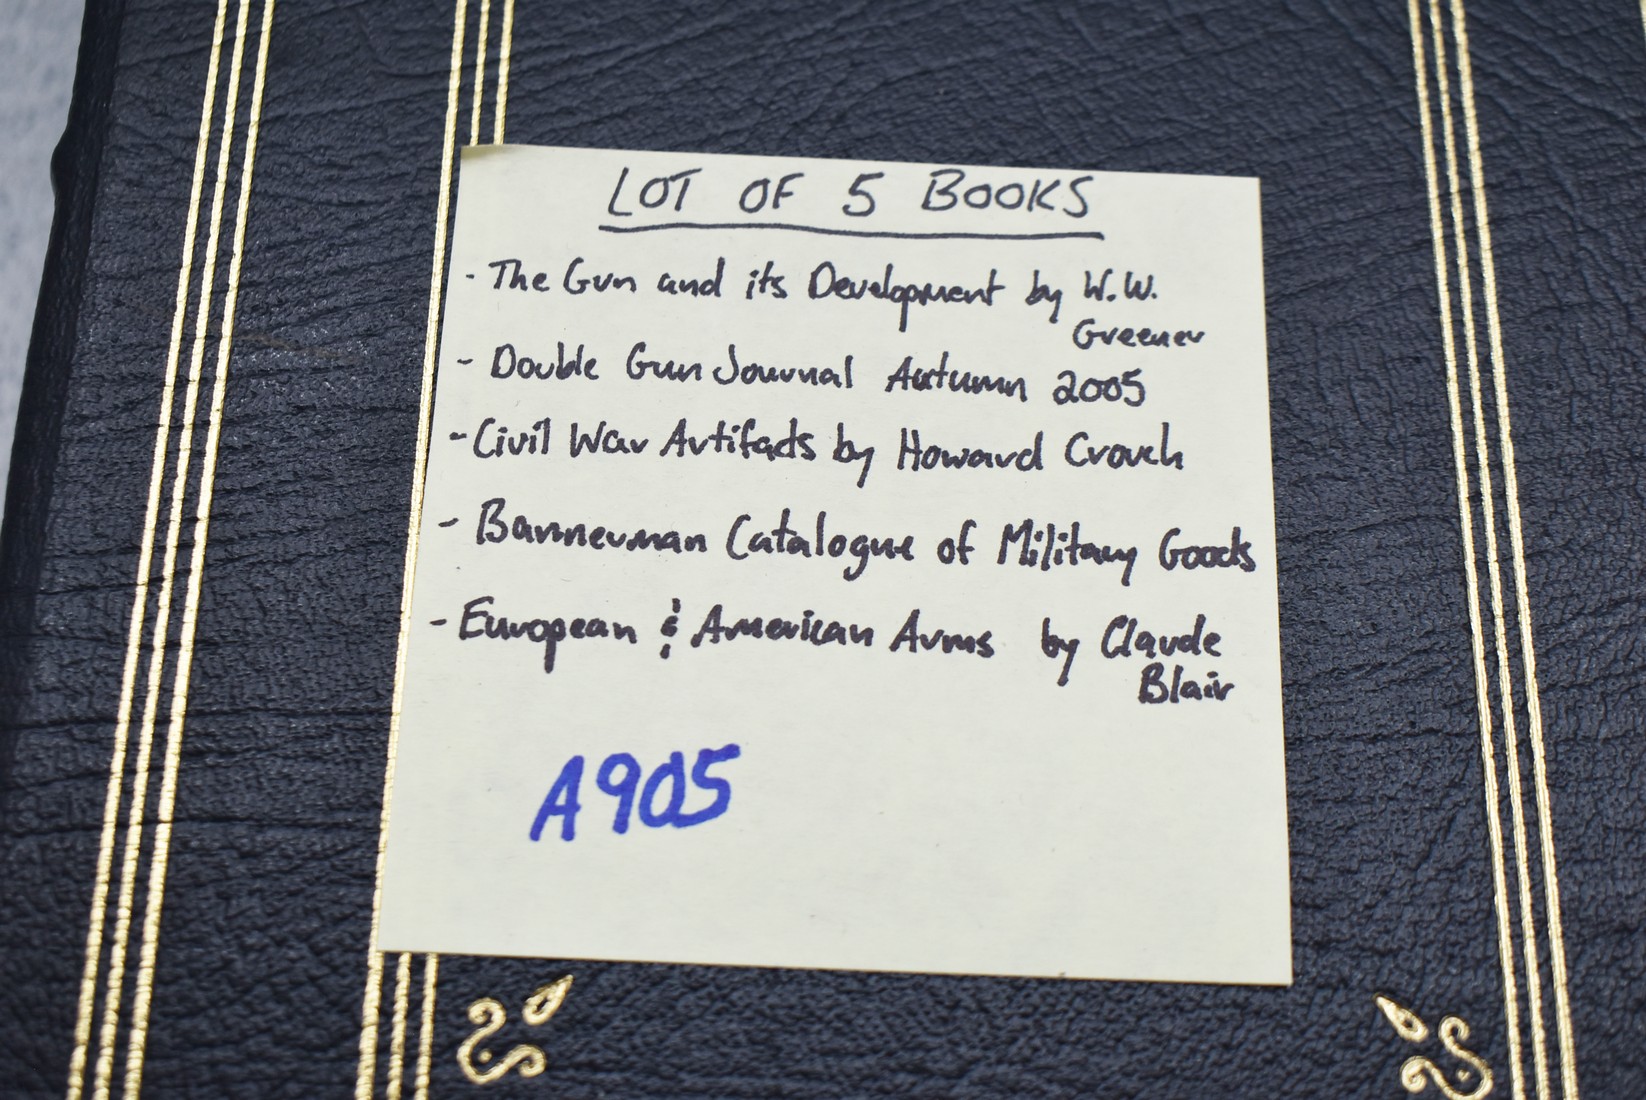 LOT OF 5 BOOKS
- The Gun and its Development by W.W.
Greener
- Double Gun Journal Autumn 2005
- Civil War Artifacts by Howard Crouch
- Bannerman Catalogue of Military Goods
- European & American Arms by Claude
Blair
A905